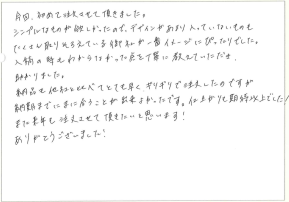 今回、初めて注文させて頂きました。
シンプルなものが欲しかったので、デザインがあまり入っていないものも
たくさん取りそろえている御社が一番イメージにぴったりでした。
入稿の時もわからなかった点を丁寧に教えていただき、
助かりました。
納品も他社と比べてとても早く、ギリギリで注文したのですが
納期までに間に合うことが出来よかったです。仕上がりも期待以上でした!
また来年も注文させて頂きたいと思います!
ありがとうございました!